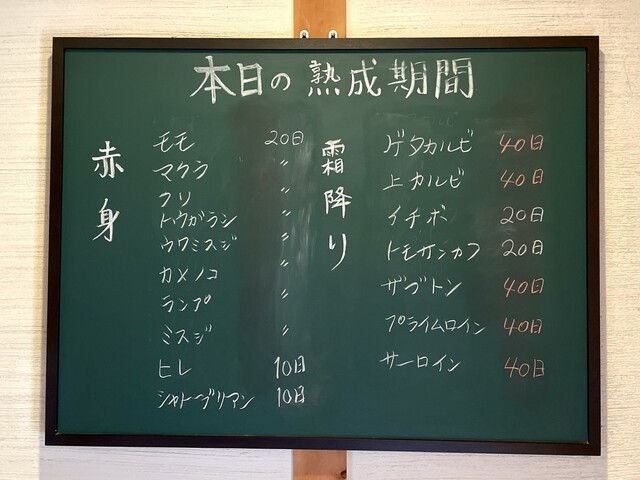 本日の熟成期間
赤身
モモ 20日
マクラ 〃
クリ 〃
トウガラシ 〃
ウワミスジ 〃
カメノコ 〃
ランプ 〃
ミスジ 〃
ヒレ 10日
シャトーブリアン 10日
霜降り
ゲタカルビ 40日
上カルビ 40日
イチボ 20日
トモサンカク 20日
ザブトン 40日
プライムロイン 40日
サーロイン 40日